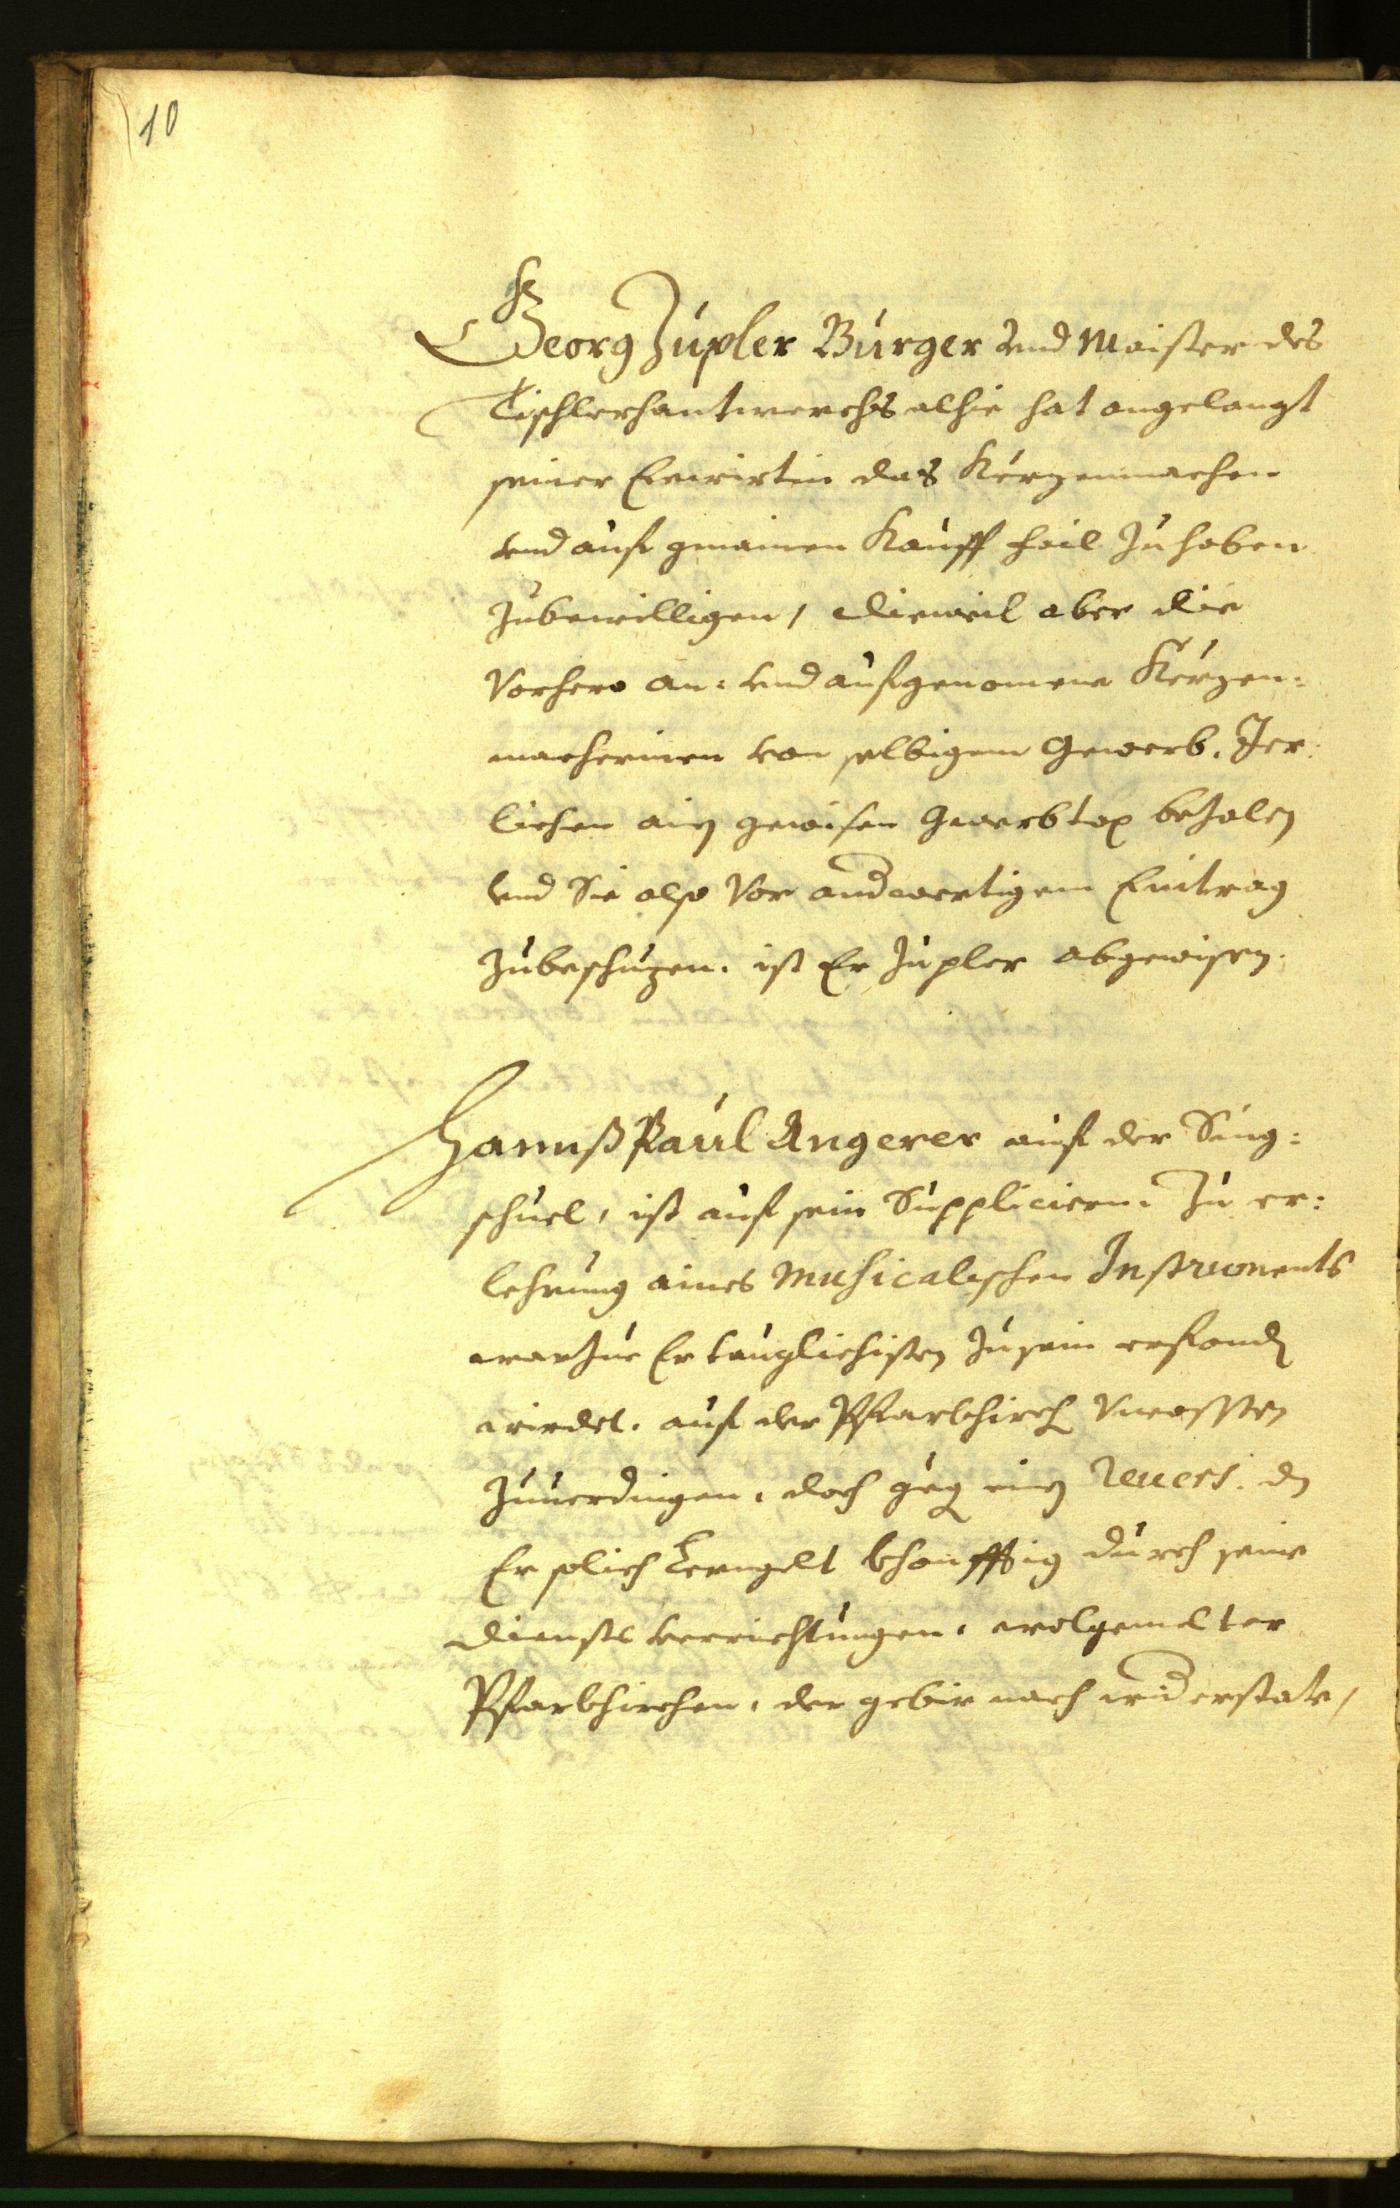 10
Georg Zupler Burger vnd Maister des
Tischlerhantwerchs alhie hat angelangt
seiner Ewirtin das Kerzenmachen
vnd auf gmainen Kauff fail zuhaben
zubewilligen, dieweil aber die
Vorhero an: vnd aufgenomene Kerzen:
macherinen von selbigem Gewerb. Jer:
lichen ain gewisen Gwerbtax bezalen
vnd Sie also Vor andwertigem Eintrag
zubeschuzen. ist Er Zupler abgewisen.
Hannß Paul Angerer auf der Sing:
schuel, ist auf sein Suppliciern. Zu er:
lehrnung aines Musicalischen Instruments
warzue Er tauglichisten zusein erfonden
wirdet. auf der Pfarkhirch Vncossten
zuuerdingen. doch gegen ein Reuers. dz
Er solich Lerngelt khonfftig durch seine
diensts verrichtungen. wolgemelter
Pfarkhirchen. der gebir nach widerstate,